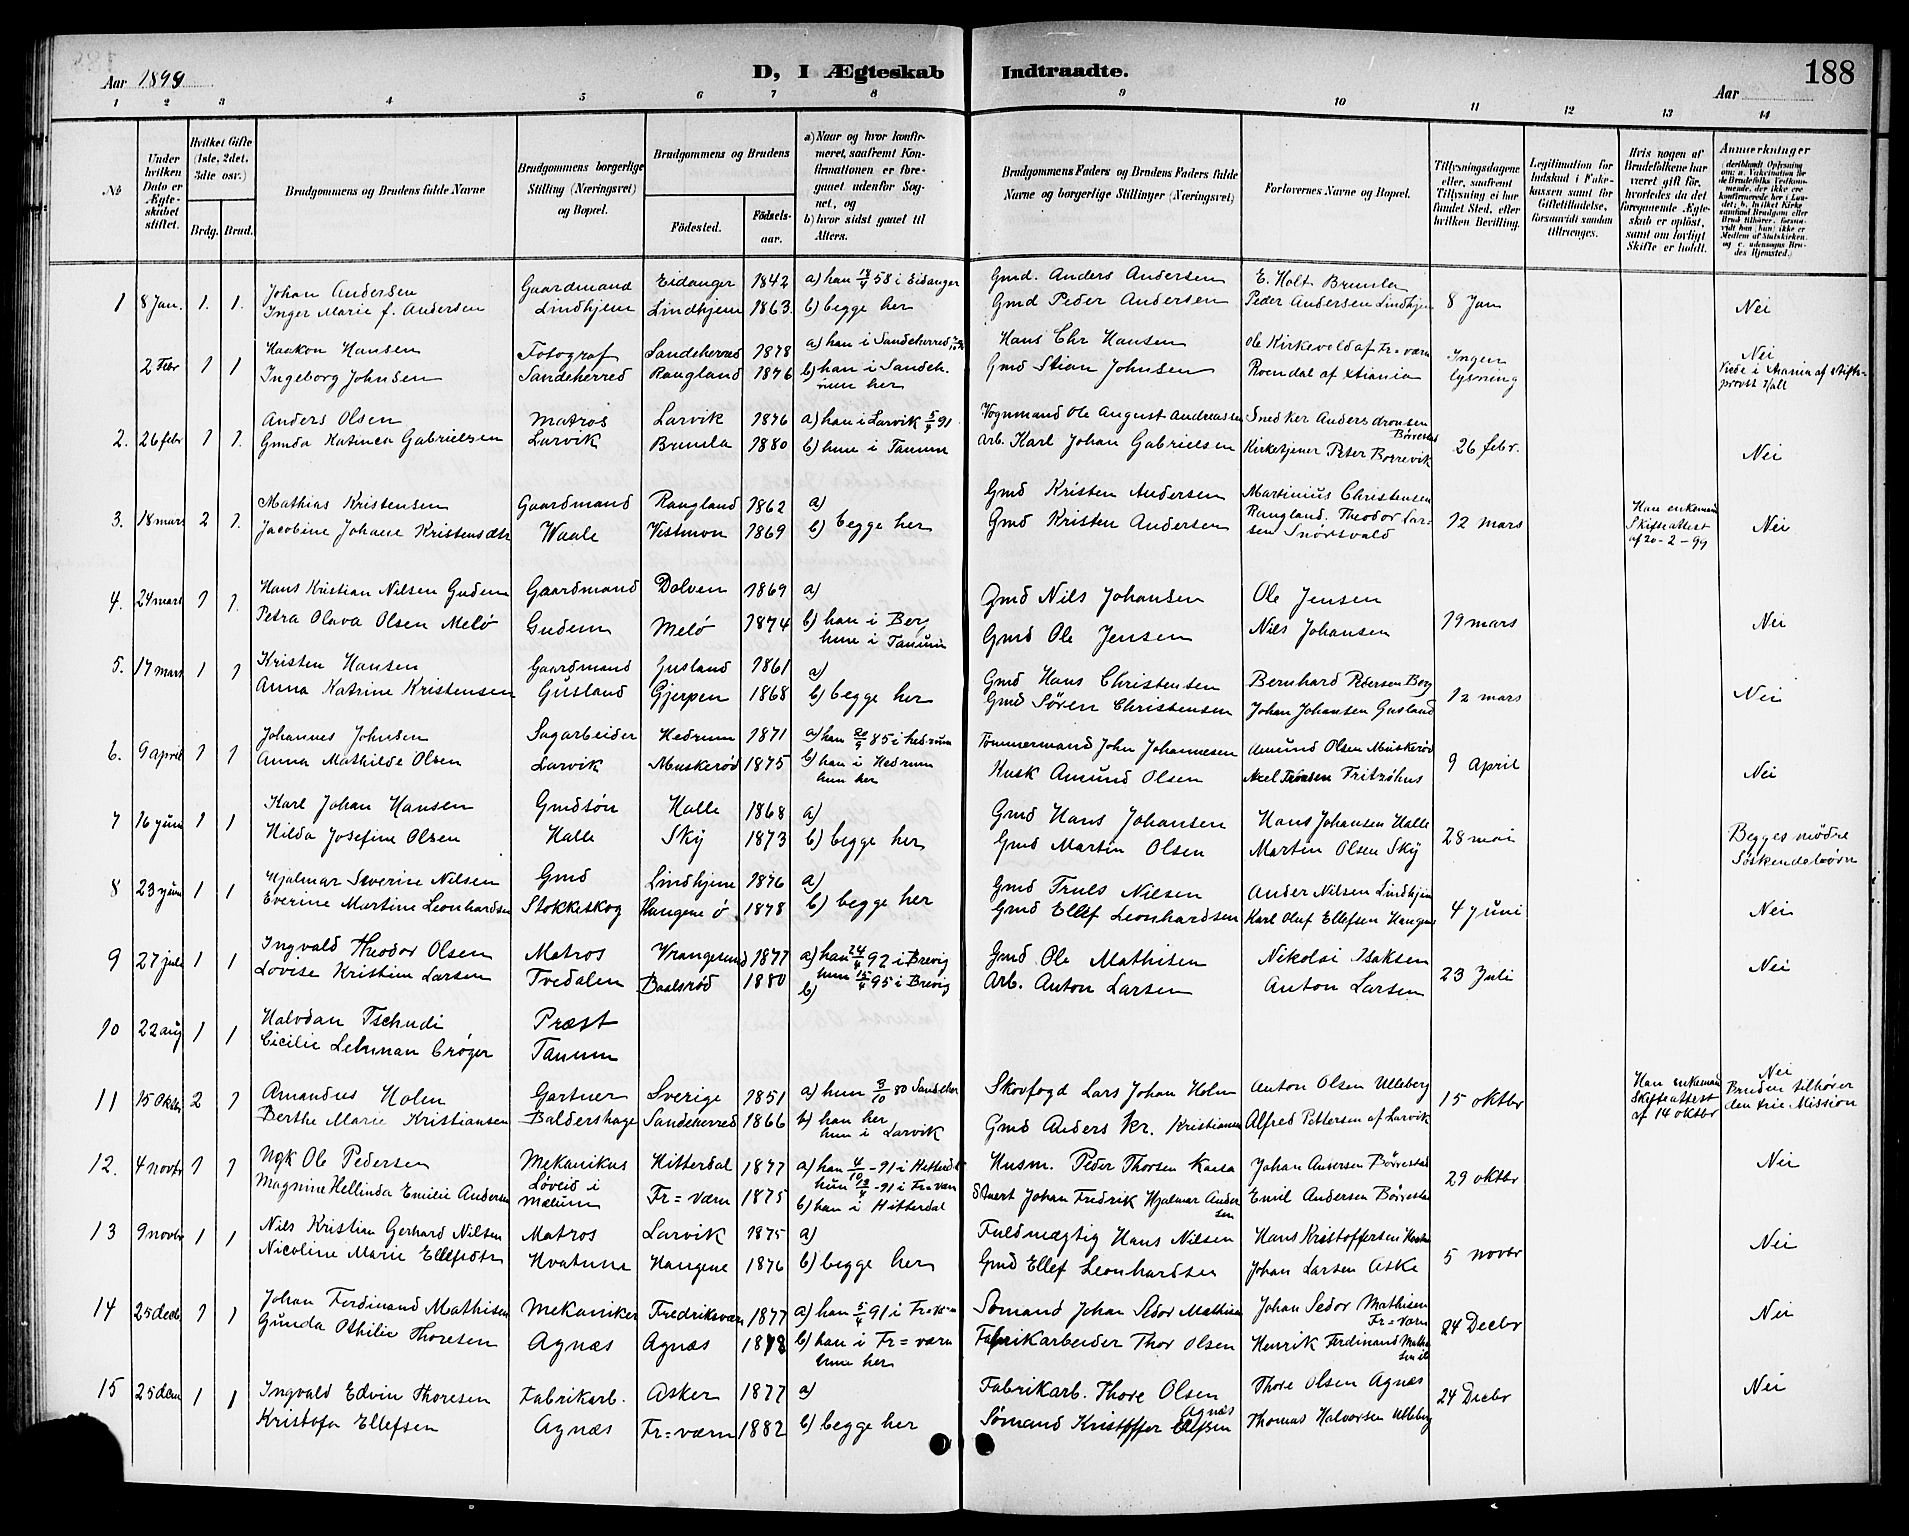 Aar 1899
D, I Ægteskab Indtraadte.
188
Aar
1 2 3 4 5 6 7 8 9 10 11 12 13 14
No
Under hvilken Dato er Ægteskabet stiftet.
Hvilket Gifte (1ste, 2det, 3die osv.)
Brdg. Brud.
Brudgommens og Brudens fulde Navne
Brudgommens borgerlige Stilling (Næringsvei) og Bopæl.
Brudgommens og Brudens
Fødested. Fødselsaar.
a) Naar og hvor konfirmeret, saafremt Konfirmationen er foregaaet udenfor Sognet, og b) hvor sidst gaaet til Alters.
Brudgommens Faders og Brudens Faders fulde Navne og borgerlige Stillinger (Næringsvei)
Forlovernes Navne og Bopæl.
Tillysningsdagene eller, saafremt Tillysning ei har fundet Sted, efter hvilken Bevilling.
Legitimation for Indskud i Enkekassen samt for Giftetilladelse, forsaavidt saadan tiltrænges.
Hvis nogen af Brudefolkene har været gift før, hvorledes da det foregaaende Ægteskab er opløst, samt om lovligt Skifte er holdt.
Anmerkninger
1 8 Jan. 1. 1. Johan Andersen Gaardmand Eidanger 1842 a) han 18/4 58 i Eidanger Gmd. Anders Andersen E. Holt Brunla 8 Jan
Inger Marie f. Andersen Lindhjem Lindhjem 1863. b) begge her Gmd Peder Andersen Peder Andersen Lindhjem Nei
2 Febr 1 1 Haakon Hansen Fotograf Sandeherred 1878 a) han i Sandeherred Hans Chr Hansen Ole Kirkevold af Fr=værn Ingen lysning Nei
Ingeborg Johnsen Sandeherred Raugland 1876 b) han i Sandeh. hun her Gmd Stian Johnsen Roendal af Xtiania Viede i Xtiania af stiftsprovst Hall
2. 26 febr 1 1. Anders Olsen Matros Larvik 1876 a) han i Larvik 5/4 91 Vognmand Ole August Andreassen Snedker Anders Aronsen Børrestad 26 febr.
Gunda Katinca Gabrielsen Larvik Brunla 1880 b) hun i Tanum Arb. Karl Johan Gabrielsen Kirketjener Peter Borrevik Nei
3. 18 mars 2 1. Mathias Kristensen Gaardmand Raugland 1862 a) Gmd Kristen Andersen Martinius Christensen 12 mars Han enkemand
Jacobine Johane Kristensdtr Waale Vestmon 1869 b) begge her Gmd Kristen Andersen Raugland. Theodor Larsen Snørsvald Skifteattest af 20-2-99 Nei
4. 24 mars 1 1. Hans Kristian Nilsen Gudem Gaardmand Dolven 1869 a) Gmd Nils Johansen Ole Jensen 19 mars
Petra Olava Olsen Melø Gudem Melø 1874 b) han i Berg hun i Tanum Gmd Ole Jensen Nils Johansen Nei
5. 17 mars 1 1 Kristen Hansen Gaardmand Gusland 1861 a) Gmd Hans Christensen Bernhard Pedersen Berg 12 mars
Anna Katrine Kristensen Gusland Gjerpen 1868 b) begge her Gmd Søren Christensen Johan Johansen Gusland Nei
6. 9 april 1 1 Johannes Johnsen Sagarbeider Hedrum 1871 a) han 20/9 85 i Hedrum Tømmermand John Johannesen Amund Olsen Muskerød 9 April
Anna Mathilde Olsen Larvik Muskerød 1875 b) han i Hedrum hun her Husk Amund Olsen Axel Fritzøhus Nei
7 16 juni 1 1 Karl Johan Hansen Gmdsøn Halle 1868 a) Gmd Hans Johansen Hans Johansen Halle 28 mai
Hilda Josefine Olsen Halle Sky 1873 b) begge her Gmd Martin Olsen Martin Olsen Sky Begges mødre Søskendebørn
8 23 juni 1 1 Hjalmar Severin Nilsen Gmd Lindhjem 1876 a) Gmd Truls Nilsen Ander Nilsen Lindhjem 4 juni
Everine Martine Leonhardsen Stokkeskog Hangene Ø. 1878 b) begge her Gmd Ellef Leonhardsen Karl Oluf Ellefsen Hangene Nei
9 27 juli 1 1 Ingvald Theodor Olsen Matros Vrangesund 1877 a) han 24/4 92 i Brevig Gmd Ole Mathisen Nikolai Isaksen 23 Juli
Lovise Kristine Larsen Tvedalen Baalsrød 1880 hun 15/4 95 i Brevig b) Arb. Anton Larsen Anton Larsen Nei
10 22 aug 1 1 Halvdan Tschudi Præst
Cicilie Lehman Crøger Tanum
11 15 Oktbr 2 1 Amandus Holm Gartner Sverige 1851 a) hun 3/10 80 Sandeher Skovfogd Lars Johan Holm Anton Olsen Ulleberg 15 oktbr Han enkemand Skifteattest af 14 oktbr Nei
Berthe Marie Kristiansen Baldershage Sandeherred 1866 b) han her, hun i Larvik Gmd Anders Kr. Kristiansen Alfred Pettersen af Larvik Bruden tilhører den frie Mission
12. 4 novbr 1 1 Ngk Ole Pedersen Mekanikus Hitterdal 1877 a) han 4/10 -91 i Hitterdal Husm. Peder Thorsen Kaasa Johan Andersen Børrestad 29 oktbr Nei
Magnine Hellinda Emilie Andersen Løveid i Mælum Fr=værn 1875 hun 3/4 -91 i Fr=værn b) han i Hitterdal Stuert Johan Fredrik Hjalmar Andersen Emil Andersen Børrestad
13 9 novbr 1 1 Nils Kristian Gerhard Nilsen Matros Larvik 1875 a) Fuldmægtig Hans Nilsen Hans Kristoffersen 5 novbr Nei
Nicoline Marie Ellefsdtr Hvatune Hangene 1876 b) begge her Gmd Ellef Leonhardsen Johan Larsen Aske
14 25 decb 1 1 Johan Ferdinand Mathisen Mekaniker Fredriksværn 1877 a) han 5/4 91 i Fr=værn Sømand Johan Sedor Mathisen Johan Sedor Mathisen Fr=værn 24 Decbr Nei
Gunda Othilie Thoresen Agnæs Agnæs 1878 b) han i Fr=værn hun her Fabrikarbeider Thor Olsen Henrik Ferdinand Mathisen
15 25 decm 1 1 Ingvald Edvin Thoresen Fabrikarb. Asker 1877 a) Fabrikarb. Thore Olsen Agnæs Thore Olsen Agnæs 24 Decbr Nei
Kristofa Ellefsen Agnæs Fr=værn 1882 b) begge her Sømand Kristoffer Ellefsen Thomas Halvorsen Ulleberg